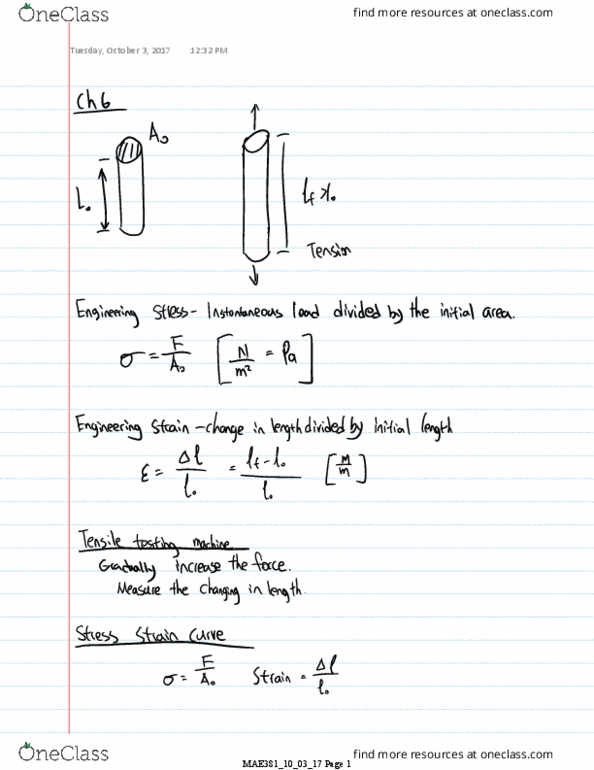 OneClass
find more resources at oneclass.com
Tuesday, October 3, 2017 12:32 PM
Ch 6
A₀
L₀
lf > l₀
Tension
Engineering Stress - Instantaneous load divided by the initial area.
σ = F/A₀ [N/m² = Pa]
Engineering Strain - change in length divided by initial length
ε = Δl/l₀ = lf - l₀/l₀ [m/m]
Tensile testing machine
Gradually increase the force.
Measure the changing in length.
Stress Strain Curve
σ = F/A₀ Strain = Δl/l₀
OneClass
find more resources at oneclass.com
MAE381_10_03_17 Page 1